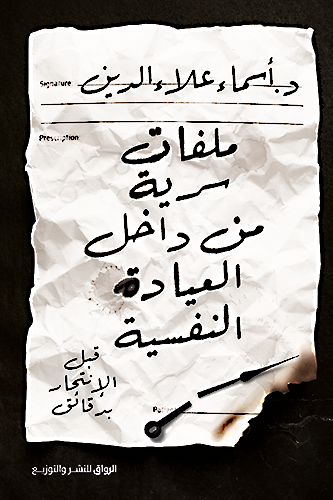 Signature د. أسماء علاء الدين
Prescription
ملفات
سرية
من داخل
العيادة
النفسية
قبل
الإنتحار
بدقائق
الرواق للنشر والتوزيع